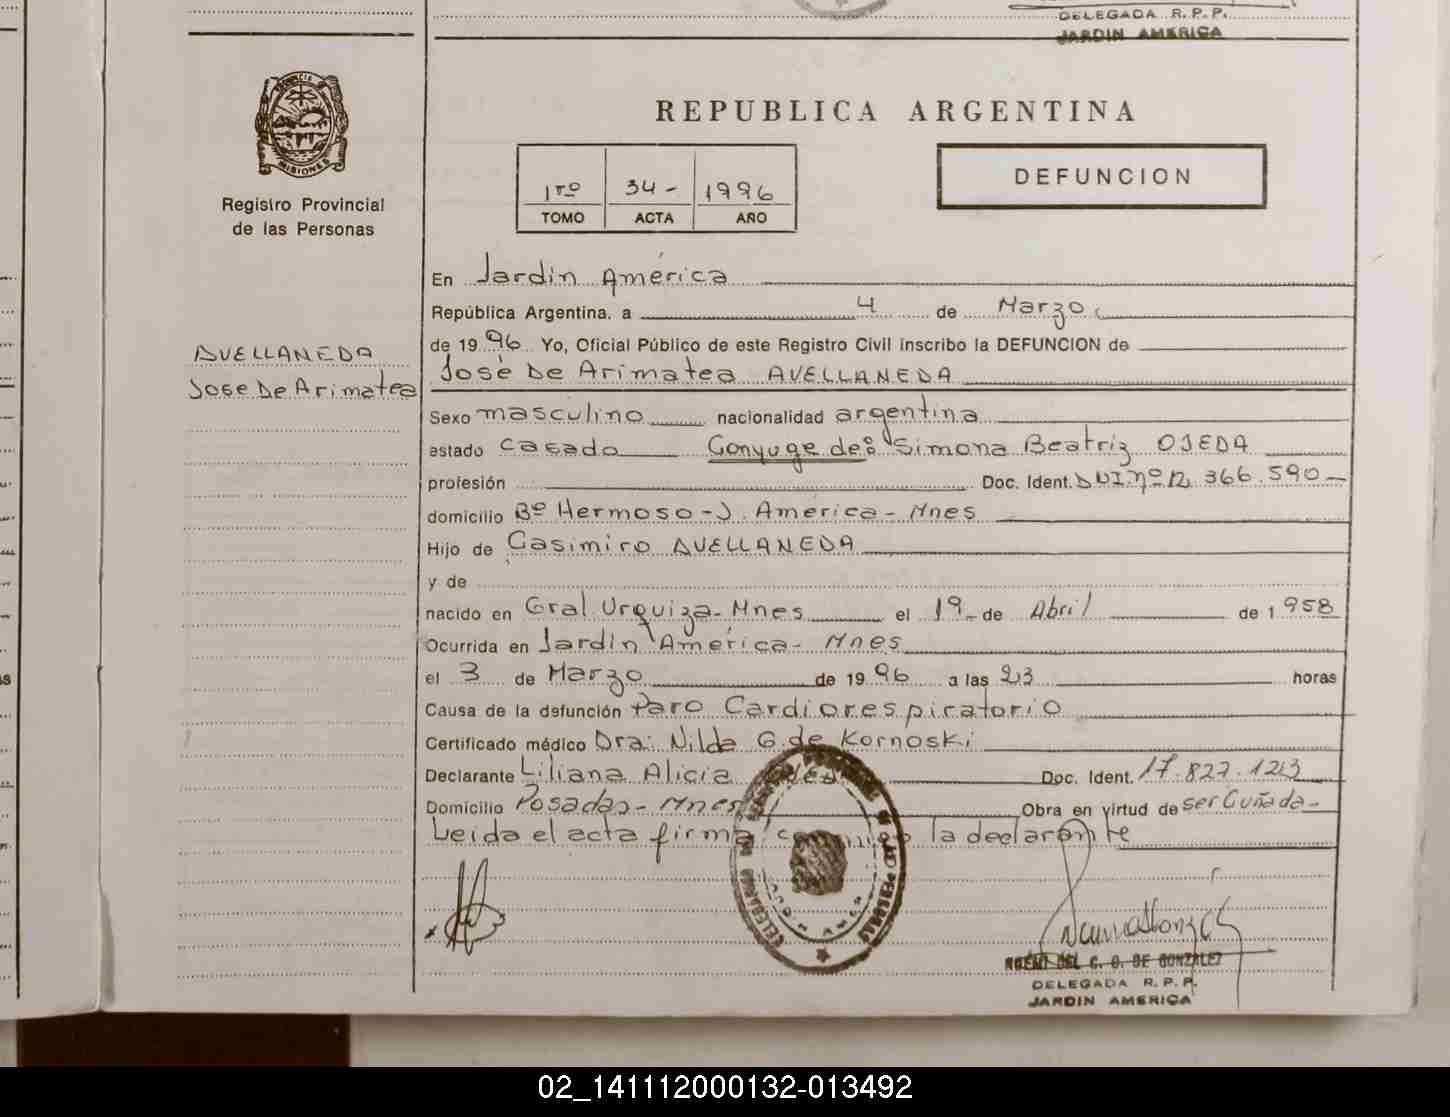 DELEGADA R. P. P.
JARDIN AMERICA
PROVINCIA DE
MISIONES
Registro Provincial
de las Personas
REPUBLICA ARGENTINA
1ro 34- 1996
TOMO ACTA AÑO
DEFUNCION
En Jardín América
República Argentina, a 4 de Marzo
de 1996 Yo, Oficial Público de este Registro Civil inscribo la DEFUNCION de
AVELLANEDA
Jose De Arimatea
José De Arimatea AVELLANEDA
Sexo masculino nacionalidad argentina
estado casado Conyuge de: Simona Beatriz OJEDA
profesión Doc. Ident. DNI. nº 12.366.590-
domicilio Bº Hermoso-J. America-Mnes
Hijo de Casimiro AVELLANEDA
y de
nacido en Gral Urquiza-Mnes el 19 de Abril de 1958
Ocurrida en Jardín América- Mnes
el 3 de Marzo de 1996 a las 23 horas
Causa de la defunción Paro Cardiorespiratorio
Certificado médico Dra: Nilda G. de Kornoski
Declarante Liliana Alicia Doc. Ident. 17.827.123
Domicilio Posadas-Mnes Obra en virtud de ser Cuñada-
Leida el acta firma conmigo la declarante
DE GONZALEZ
DELEGADA R. P. P.
JARDIN AMERICA
02_141112000132-013492